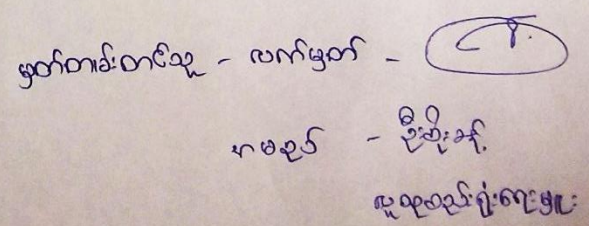 မှတ်တမ်းတင်သူ - လက်မှတ် -
အမည် - ဦးစိုးခန့်
လူထုစည်းရုံးရေးမှူး